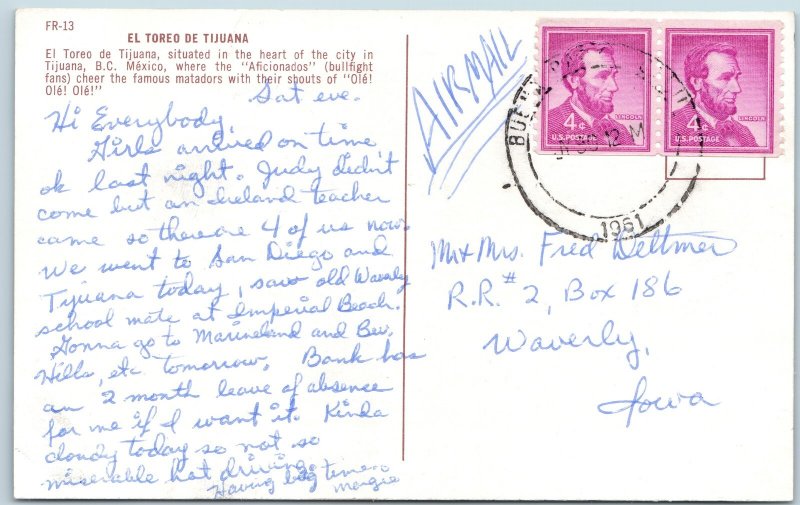 FR-13
EL TOREO DE TIJUANA
El Toreo de Tijuana, situated in the heart of the city in
Tijuana, B.C. México, where the "Aficionados" (bullfight
fans) cheer the famous matadors with their shouts of "Olé!
Olé! Olé!"
Sat eve.
Hi Everybody,
Girls arrived on time
ok last night. Judy didn't
come but an Leland teacher
came so there are 4 of us now.
We went to San Diego and
Tijuana today, saw old Waverly
school mate at Imperial Beach.
Gonna go to Marineland and Bev.
Hills, etc tomorrow. Bank has
an 2 month leave of absence
for me if I want it. Kinda
cloudy today so not so
miserable hot driving.
Having big time
Margie
AIRMAIL
4¢
LINCOLN
U.S. POSTAGE
4¢
LINCOLN
U.S. POSTAGE
BUENA
30 12 M
1961
Mr & Mrs. Fred Dettmer
R.R. #2, Box 186
Waverly,
Iowa